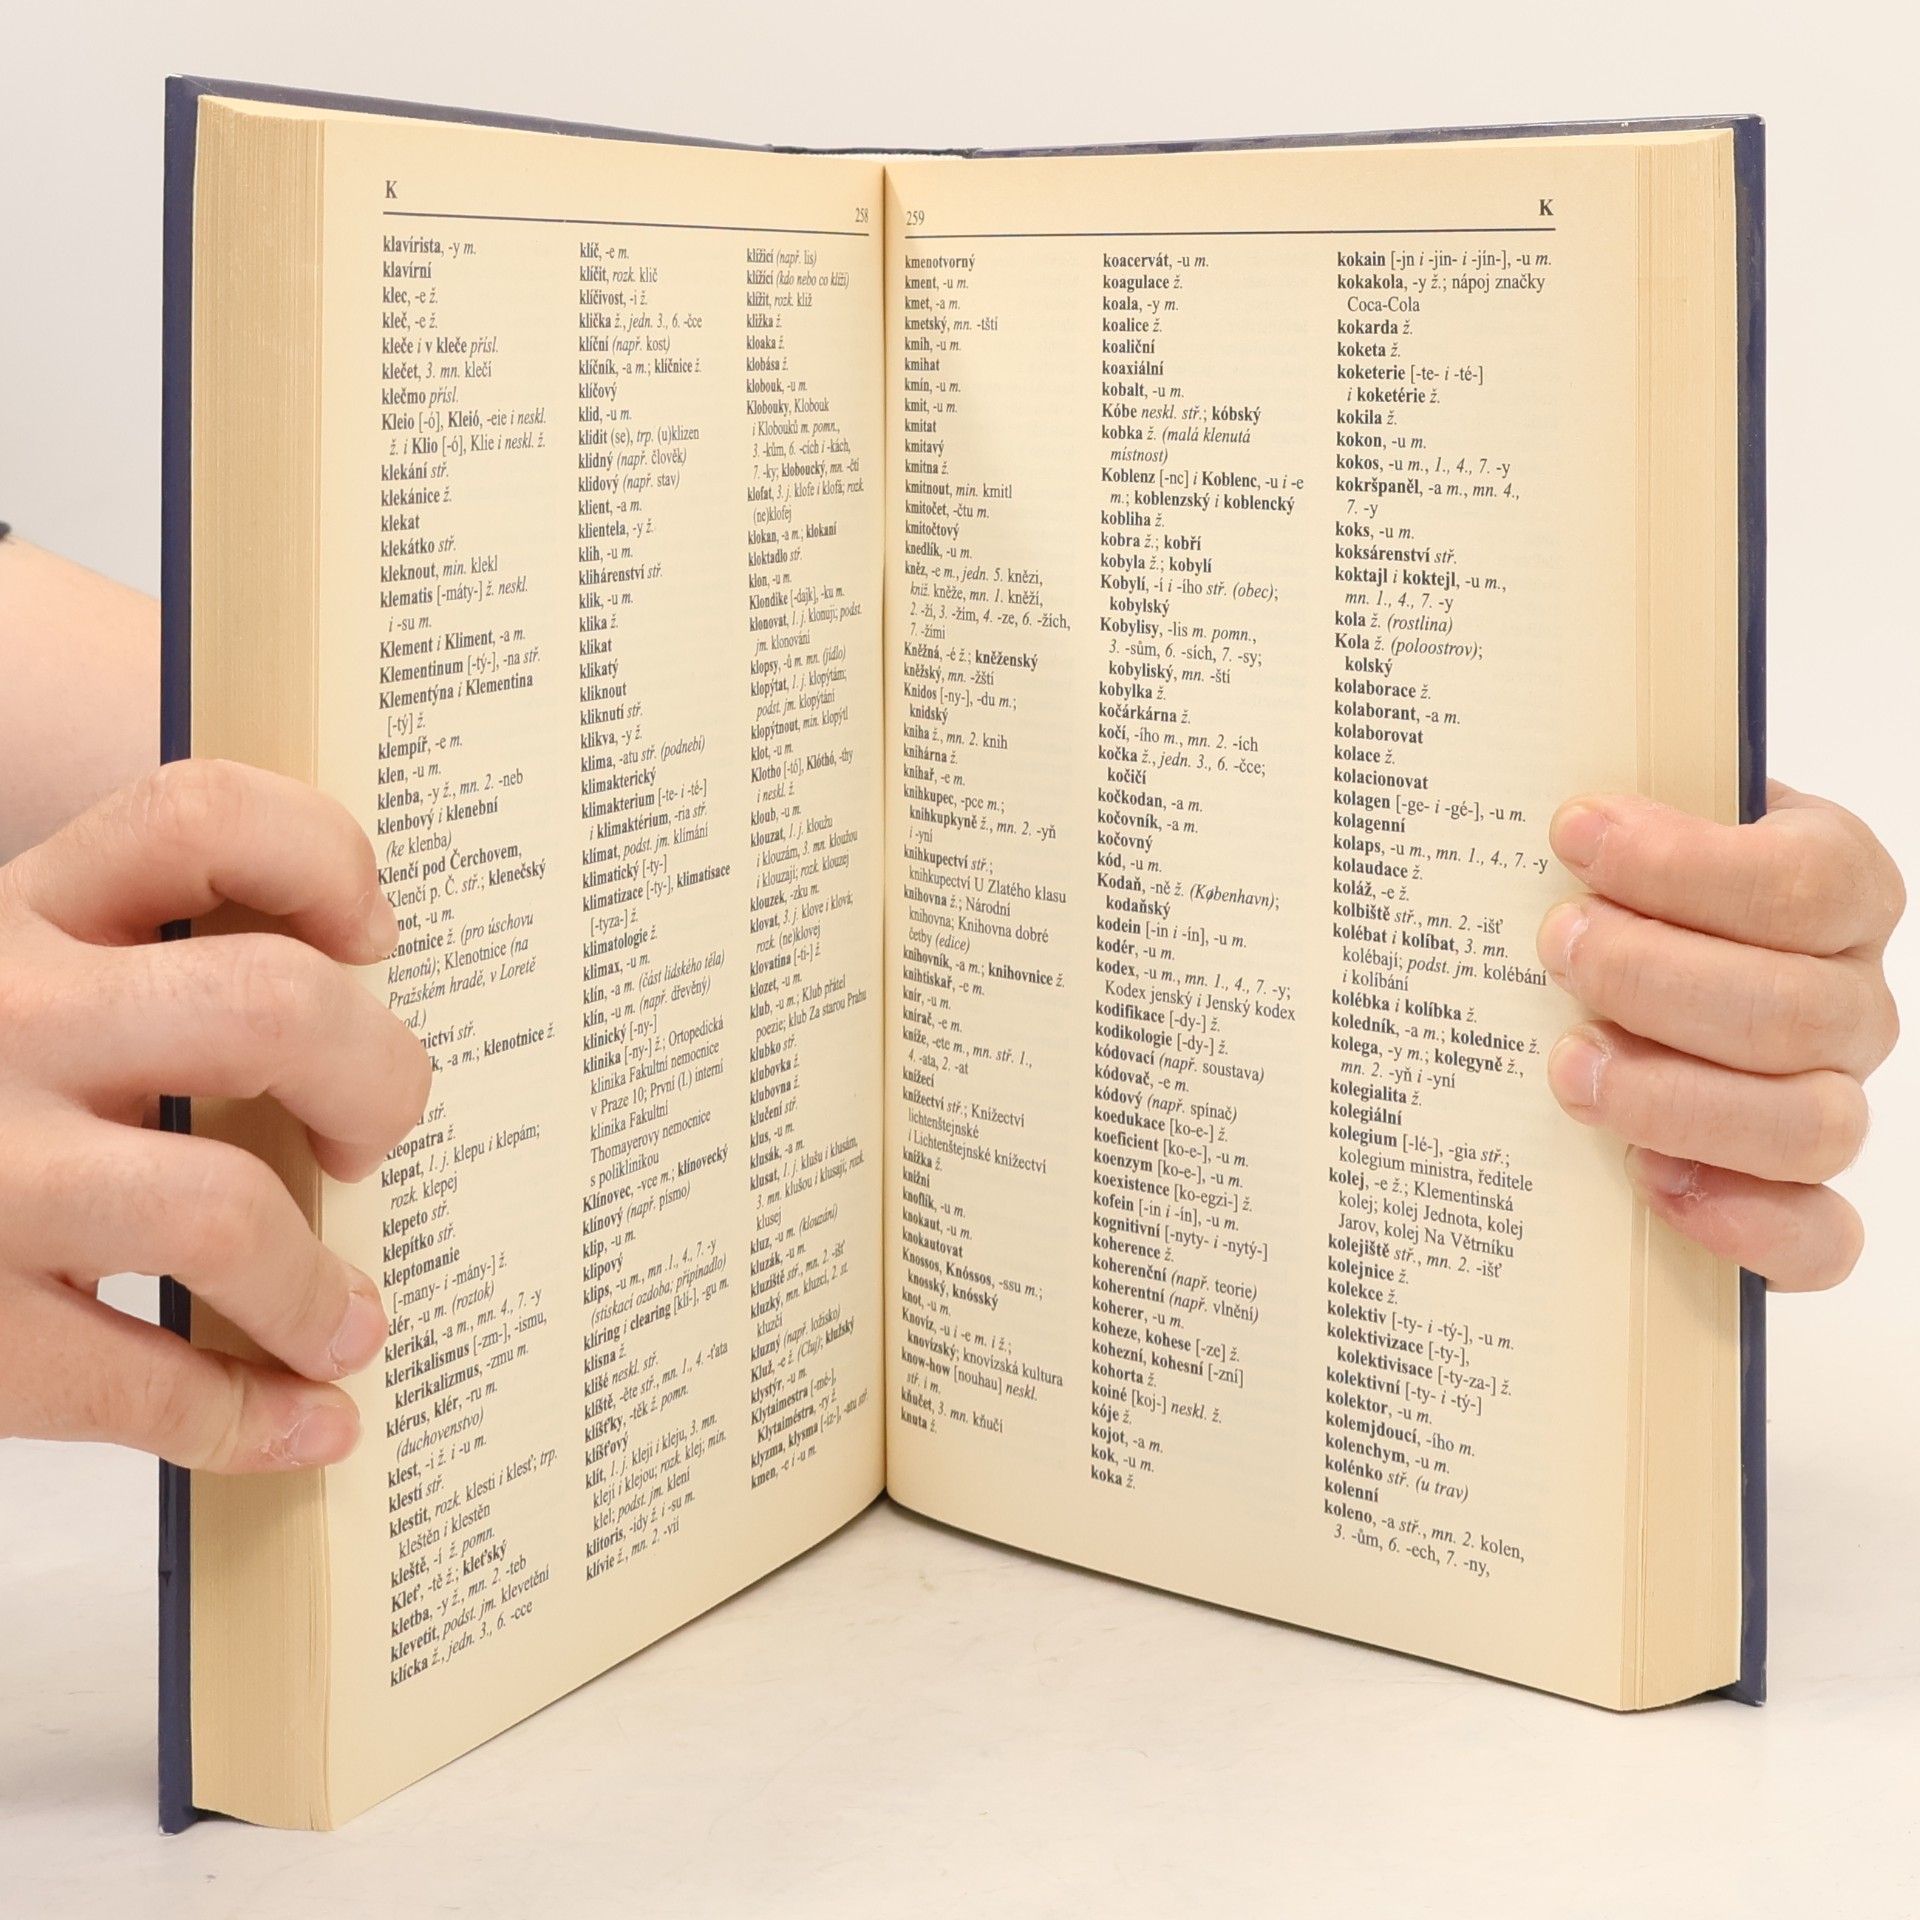 K
258
klavírista, -y m.
klavírní
klec, -e ž.
kleč, -e ž.
kleče i v kleče přísl.
klečet, 3. mn. klečí
klečmo přísl.
Kleio [-ó], Kleió, -eie i neskl.
ž. i Klio [-ó], Klie i neskl. ž.
klekání stř.
klekánice ž.
klekat
klekátko stř.
kleknout, min. klekl
klematis [-máty-] ž. neskl.
i -su m.
Klement i Kliment, -a m.
Klementinum [-tý-], -na stř.
Klementýna i Klementina
[-tý] ž.
klempíř, -e m.
klen, -u m.
klenba, -y ž., mn. 2. -neb
klenbový i klenební
(ke klenba)
Klenčí pod Čerchovem,
Klenčí p. Č. stř.; klenečský
not, -u m.
enotnice ž. (pro úschovu
klenotů); Klenotnice (na
Pražském hradě, v Loretě
od.)
nictví stř.
k, -a m.; klenotnice ž.
stř.
kleopatra ž.
klepat, 1. j. klepu i klepám;
rozk. klepej
klepeto stř.
klepítko stř.
kleptomanie
[-many- i -mány-] ž.
klér, -u m. (roztok)
klerikál, -a m., mn. 4., 7. -y
klerikalismus [-zm-], -ismu,
klerikalizmus, -zmu m.
klérus, klér, -ru m.
(duchovenstvo)
klest, -i ž. i -u m.
klestí stř.
klestit, rozk. klesti i klesť; trp.
kleštěn i klestěn
kleště, -í ž. pomn.
Kleť, -tě ž.; kleťský
kletba, -y ž., mn. 2. -teb
klevetit, podst. jm. klevetění
klícka ž., jedn. 3., 6. -cce
klíč, -e m.
klíčit, rozk. klič
klíčivost, -i ž.
klička ž., jedn. 3., 6. -čce
klíční (např. kost)
klíčník, -a m.; klíčnice ž.
klíčový
klid, -u m.
klidit (se), trp. (u)klizen
klidný (např. člověk)
klidový (např. stav)
klient, -a m.
klientela, -y ž.
klih, -u m.
klihárenství stř.
klik, -u m.
klika ž.
klikat
klikatý
kliknout
kliknutí stř.
klikva, -y ž.
klima, -atu stř. (podnebí)
klimakterický
klimakterium [-te- i -té-]
i klimaktérium, -ria stř.
klímat, podst. jm. klímání
klimatický [-ty-]
klimatizace [-ty-], klimatisace
[-tyza-] ž.
klimatologie ž.
klimax, -u m.
klín, -a m. (část lidského těla)
klín, -u m. (např. dřevěný)
klinický [-ny-]
klinika [-ny-] ž.; Ortopedická
klinika Fakultní nemocnice
v Praze 10; První (I.) interní
klinika Fakultní
Thomayerovy nemocnice
s poliklinikou
Klínovec, -vce m.; klínovecký
klínový (např. písmo)
klip, -u m.
klipový
klips, -u m., mn .1., 4., 7. -y
(stiskací ozdoba; připínadlo)
klíring i clearing [klí-], -gu m.
klisna ž.
klišé neskl. stř.
klíště, -ěte stř., mn. 1., 4. -ťata
klíšťky, -těk ž. pomn.
klíšťový
klít, 1. j. kleji i kleju, 3. mn.
klejí i klejou; rozk. klej; min.
klel; podst. jm. klení
klitoris, -idy ž. i -su m.
klívie ž., mn. 2. -vií
klížící (např. lis)
klížící (kdo nebo co klíží)
klížit, rozk. kliž
kližka ž.
kloaka ž.
klobása ž.
klobouk, -u m.
Klobouky, Klobouk
i Klobouků m. pomn.,
3. -kům, 6. -cích i -kách,
7. -ky; kloboucký, mn. -čtí
klofat, 3. j. klofe i klofá; rozk.
(ne)klofej
klokan, -a m.; klokaní
kloktadlo stř.
klon, -u m.
Klondike [-dajk], -ku m.
klonovat, 1. j. klonuji; podst.
jm. klonování
klopsy, -ů m. mn. (jídlo)
klopýtat, 1. j. klopýtám;
podst. jm. klopýtání
klopýtnout, min. klopýtl
klot, -u m.
Klotho [-tó], Klóthó, -thy
i neskl. ž.
kloub, -u m.
klouzat, 1. j. kloužu
i klouzám, 3. mn. kloužou
i klouzají; rozk. klouzej
klouzek, -zku m.
klovat, 3. j. klove i klová;
rozk. (ne)klovej
klovatina [-ti-] ž.
klozet, -u m.
klub, -u m.; Klub přátel
poezie; klub Za starou Prahu
klubko stř.
klubovka ž.
klubovna ž.
klučení stř.
klus, -u m.
klusák, -a m.
klusat, 1. j. klušu i klusám,
3. mn. klušou i klusají; rozk.
klusej
kluz, -u m. (klouzání)
kluzák, -u m.
kluziště stř., mn. 2. -išť
kluzký, mn. kluzcí, 2. st.
kluzčí
kluzný (např. ložisko)
Kluž, -e ž. (Cluj); klužský
klystýr, -u m.
Klytaimestra [-mé-],
Klytaiméstra, -ry ž.
klyzma, klysma [-iz-], -atu stř.
kmen, -e i -u m.
259
K
kmenotvorný
kment, -u m.
kmet, -a m.
kmetský, mn. -tští
kmih, -u m.
kmihat
kmín, -u m.
kmit, -u m.
kmitat
kmitavý
kmitna ž.
kmitnout, min. kmitl
kmitočet, -čtu m.
kmitočtový
knedlík, -u m.
kněz, -e m., jedn. 5. knězi,
kniž. kněže, mn. 1. kněží,
2. -ží, 3. -žím, 4. -ze, 6. -žích,
7. -žími
Kněžná, -é ž.; kněženský
kněžský, mn. -žští
Knidos [-ny-], -du m.;
knidský
kniha ž., mn. 2. knih
knihárna ž.
knihař, -e m.
knihkupec, -pce m.;
knihkupkyně ž., mn. 2. -yň
i -yní
knihkupectví stř.;
knihkupectví U Zlatého klasu
knihovna ž.; Národní
knihovna; Knihovna dobré
četby (edice)
knihovník, -a m.; knihovnice ž.
knihtiskař, -e m.
knír, -u m.
knírač, -e m.
kníže, -ete m., mn. stř. 1.,
4. -ata, 2. -at
knížecí
knížectví stř.; Knížectví
lichtenštejnské
i Lichtenštejnské knížectví
knížka ž.
knižní
knoflík, -u m.
knokaut, -u m.
knokautovat
Knossos, Knóssos, -ssu m.;
knosský, knósský
knot, -u m.
Knovíz, -u i -e m. i ž.;
knovízský; knovízská kultura
know-how [nouhau] neskl.
stř. i m.
kňučet, 3. mn. kňučí
knuta ž.
koacervát, -u m.
koagulace ž.
koala, -y m.
koalice ž.
koaliční
koaxiální
kobalt, -u m.
Kóbe neskl. stř.; kóbský
kobka ž. (malá klenutá
místnost)
Koblenz [-nc] i Koblenc, -u i -e
m.; koblenzský i koblencký
kobliha ž.
kobra ž.; kobří
kobyla ž.; kobylí
Kobylí, -í i -ího stř. (obec);
kobylský
Kobylisy, -lis m. pomn.,
3. -sům, 6. -sích, 7. -sy;
kobyliský, mn. -ští
kobylka ž.
kočárkárna ž.
kočí, -ího m., mn. 2. -ích
kočka ž., jedn. 3., 6. -čce;
kočičí
kočkodan, -a m.
kočovník, -a m.
kočovný
kód, -u m.
Kodaň, -ně ž. (København);
kodaňský
kodein [-in i -ín], -u m.
kodér, -u m.
kodex, -u m., mn. 1., 4., 7. -y;
Kodex jenský i Jenský kodex
kodifikace [-dy-] ž.
kodikologie [-dy-] ž.
kódovací (např. soustava)
kódovač, -e m.
kódový (např. spínač)
koedukace [ko-e-] ž.
koeficient [ko-e-], -u m.
koenzym [ko-e-], -u m.
koexistence [ko-egzi-] ž.
kofein [-in i -ín], -u m.
kognitivní [-nyty- i -nytý-]
koherence ž.
koherenční (např. teorie)
koherentní (např. vlnění)
koherer, -u m.
koheze, kohese [-ze] ž.
kohezní, kohesní [-zní]
kohorta ž.
koiné [koj-] neskl. ž.
kóje ž.
kojot, -a m.
kok, -u m.
koka ž.
kokain [-jn i -jin- i -jín-], -u m.
kokakola, -y ž.; nápoj značky
Coca-Cola
kokarda ž.
koketa ž.
koketerie [-te- i -té-]
i koketérie ž.
kokila ž.
kokon, -u m.
kokos, -u m., 1., 4., 7. -y
kokršpaněl, -a m., mn. 4.,
7. -y
koks, -u m.
koksárenství stř.
koktajl i koktejl, -u m.,
mn. 1., 4., 7. -y
kola ž. (rostlina)
Kola ž. (poloostrov);
kolský
kolaborace ž.
kolaborant, -a m.
kolaborovat
kolace ž.
kolacionovat
kolagen [-ge- i -gé-], -u m.
kolagenní
kolaps, -u m., mn. 1., 4., 7. -y
kolaudace ž.
koláž, -e ž.
kolbiště stř., mn. 2. -išť
kolébat i kolíbat, 3. mn.
kolébají; podst. jm. kolébání
i kolíbání
kolébka i kolíbka ž.
koledník, -a m.; kolednice ž.
kolega, -y m.; kolegyně ž.,
mn. 2. -yň i -yní
kolegialita ž.
kolegiální
kolegium [-lé-], -gia stř.;
kolegium ministra, ředitele
kolej, -e ž.; Klementinská
kolej; kolej Jednota, kolej
Jarov, kolej Na Větrníku
kolejiště stř., mn. 2. -išť
kolejnice ž.
kolekce ž.
kolektiv [-ty- i -tý-], -u m.
kolektivizace [-ty-],
kolektivisace [-ty-za-] ž.
kolektivní [-ty- i -tý-]
kolektor, -u m.
kolemjdoucí, -ího m.
kolenchym, -u m.
kolénko stř. (u trav)
kolenní
koleno, -a stř., mn. 2. kolen,
3. -ům, 6. -ech, 7. -ny,